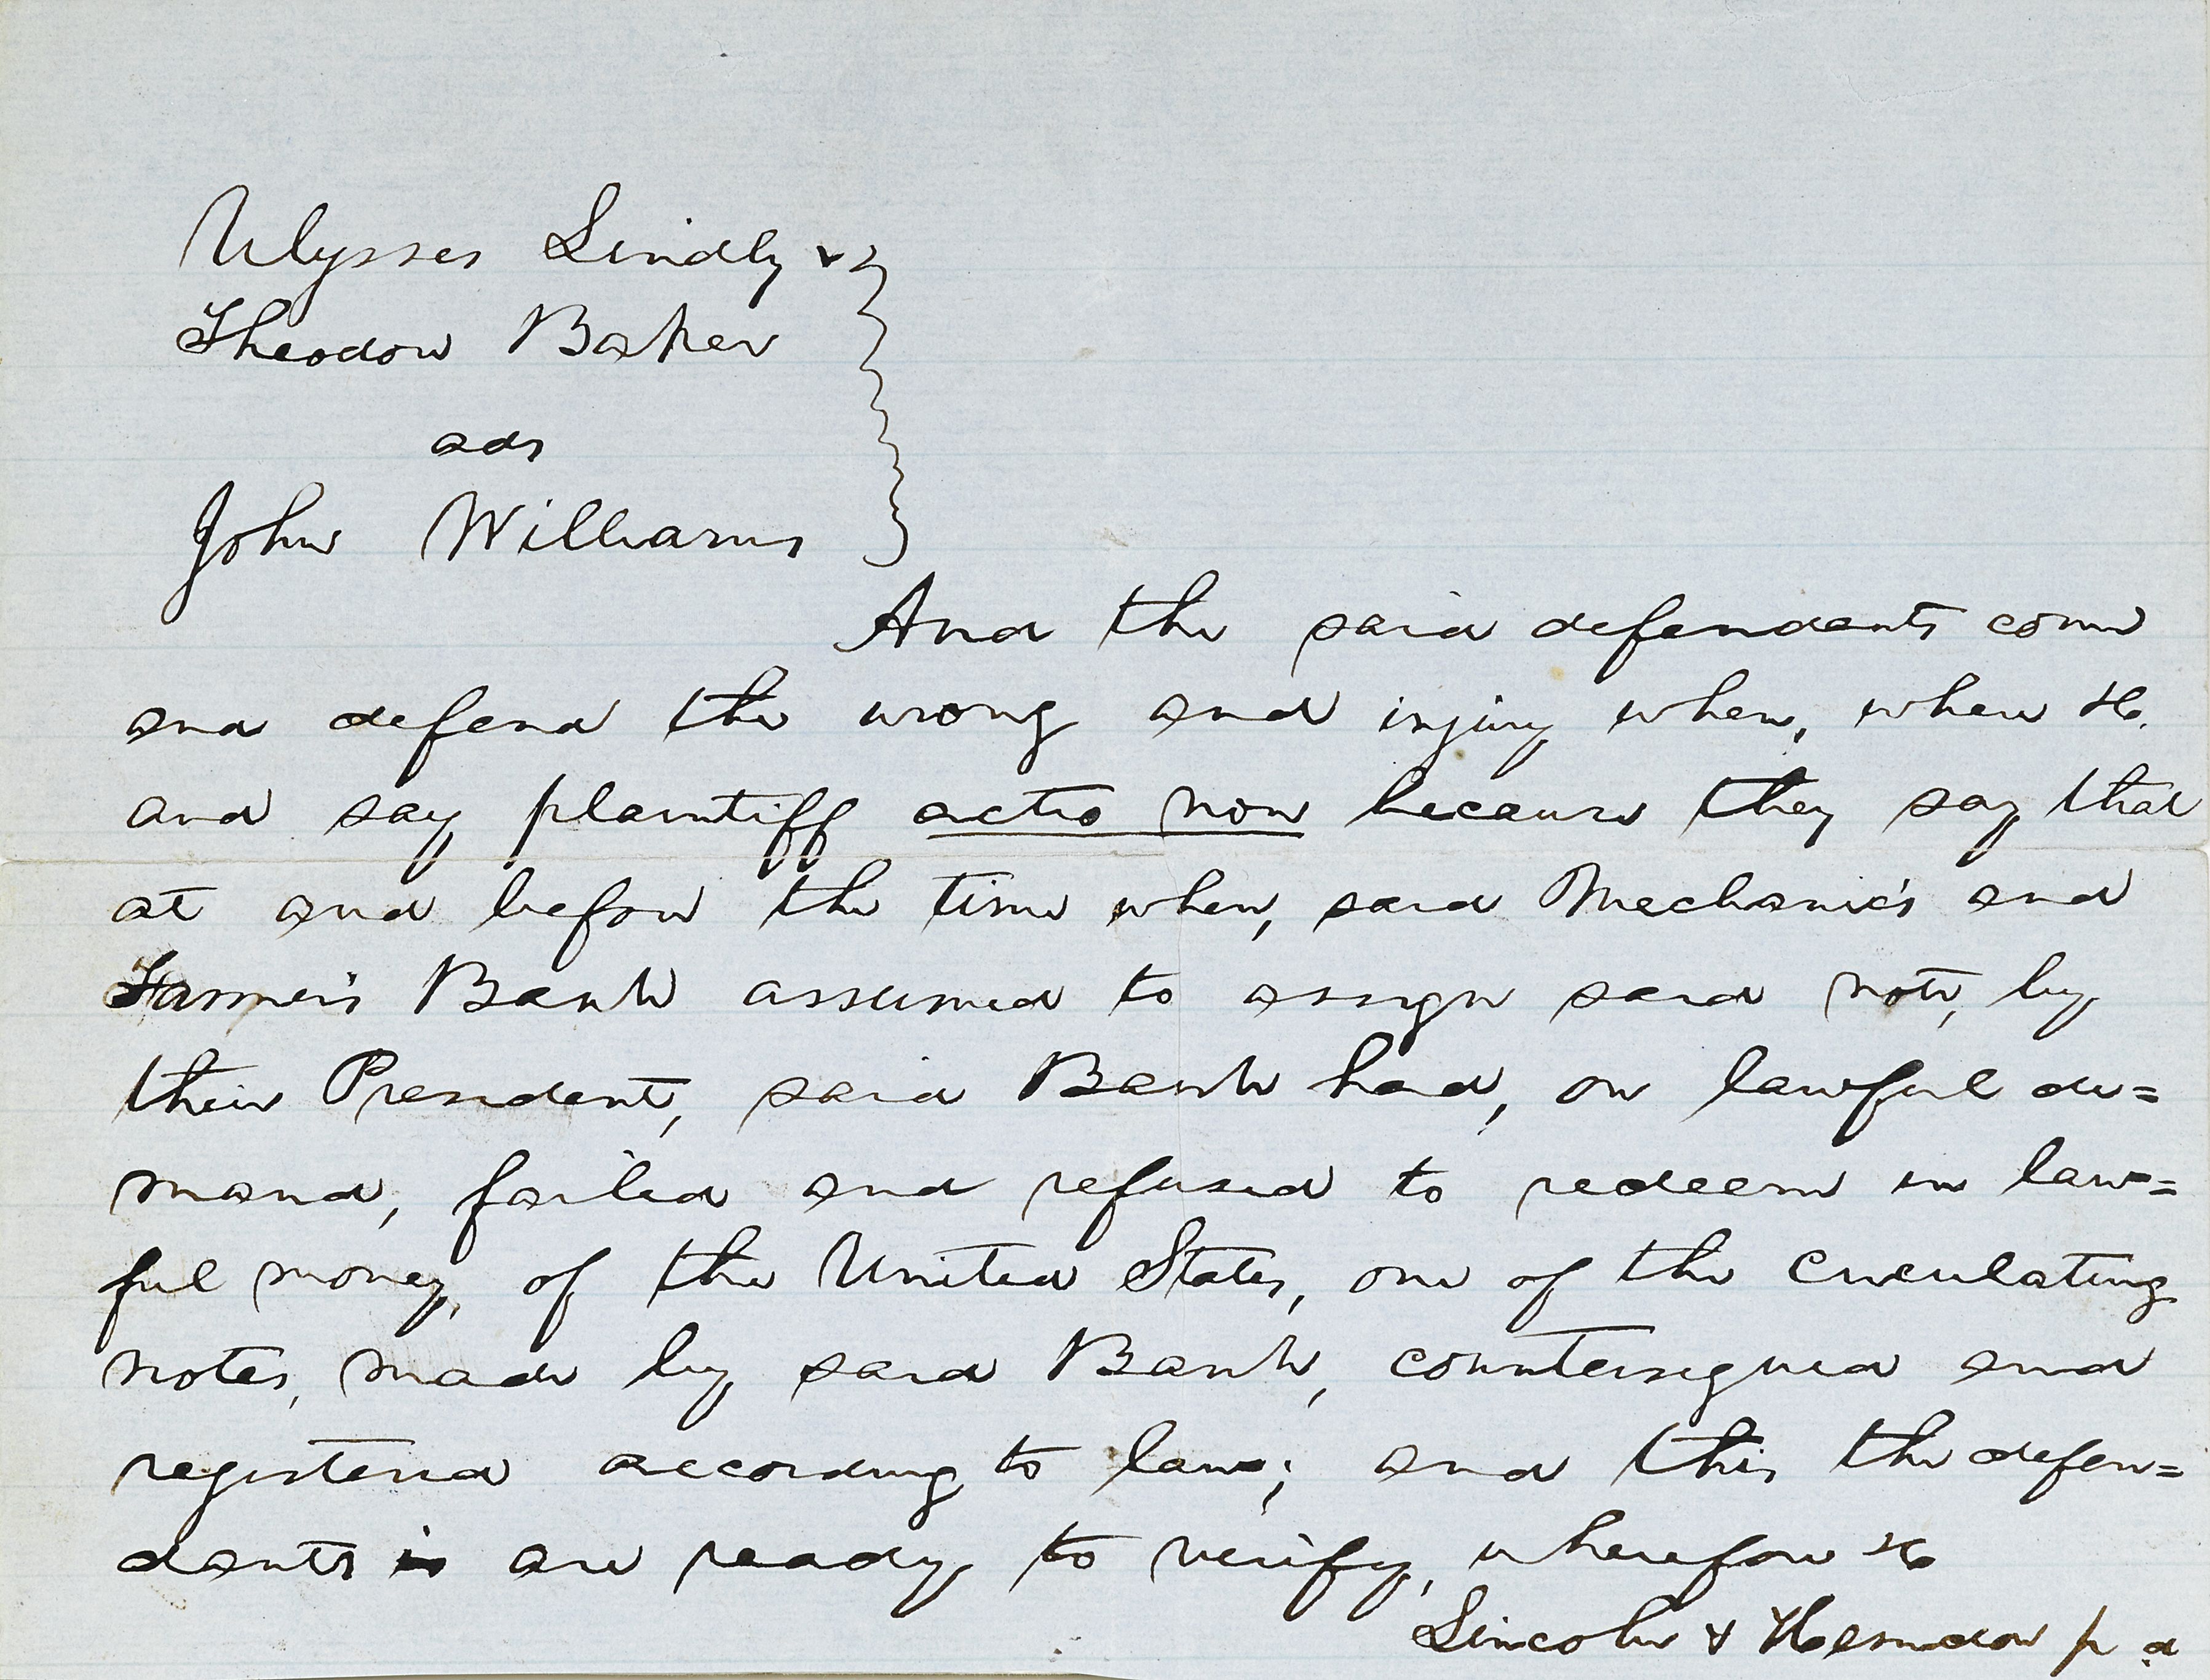 Ulysses Lindly &
Theodore Baker
ads
John Williams
And the said defendants come
and defend the wrong and injury when, where &c.
and say plaintiff actio non because they say that
at and before the time when, said Mechanic's and
Farmer's Bank assumed to assign said note, by
their President, said Bank had, on lawful de=
mand, failed and refused to redeem in law=
ful money, of the United States, one of the circulating
notes, made by said Bank, countersigned and
registered according to law; and this the defen=
dants is are ready to verify, wherefore &c
Lincoln & Herndon p. d.